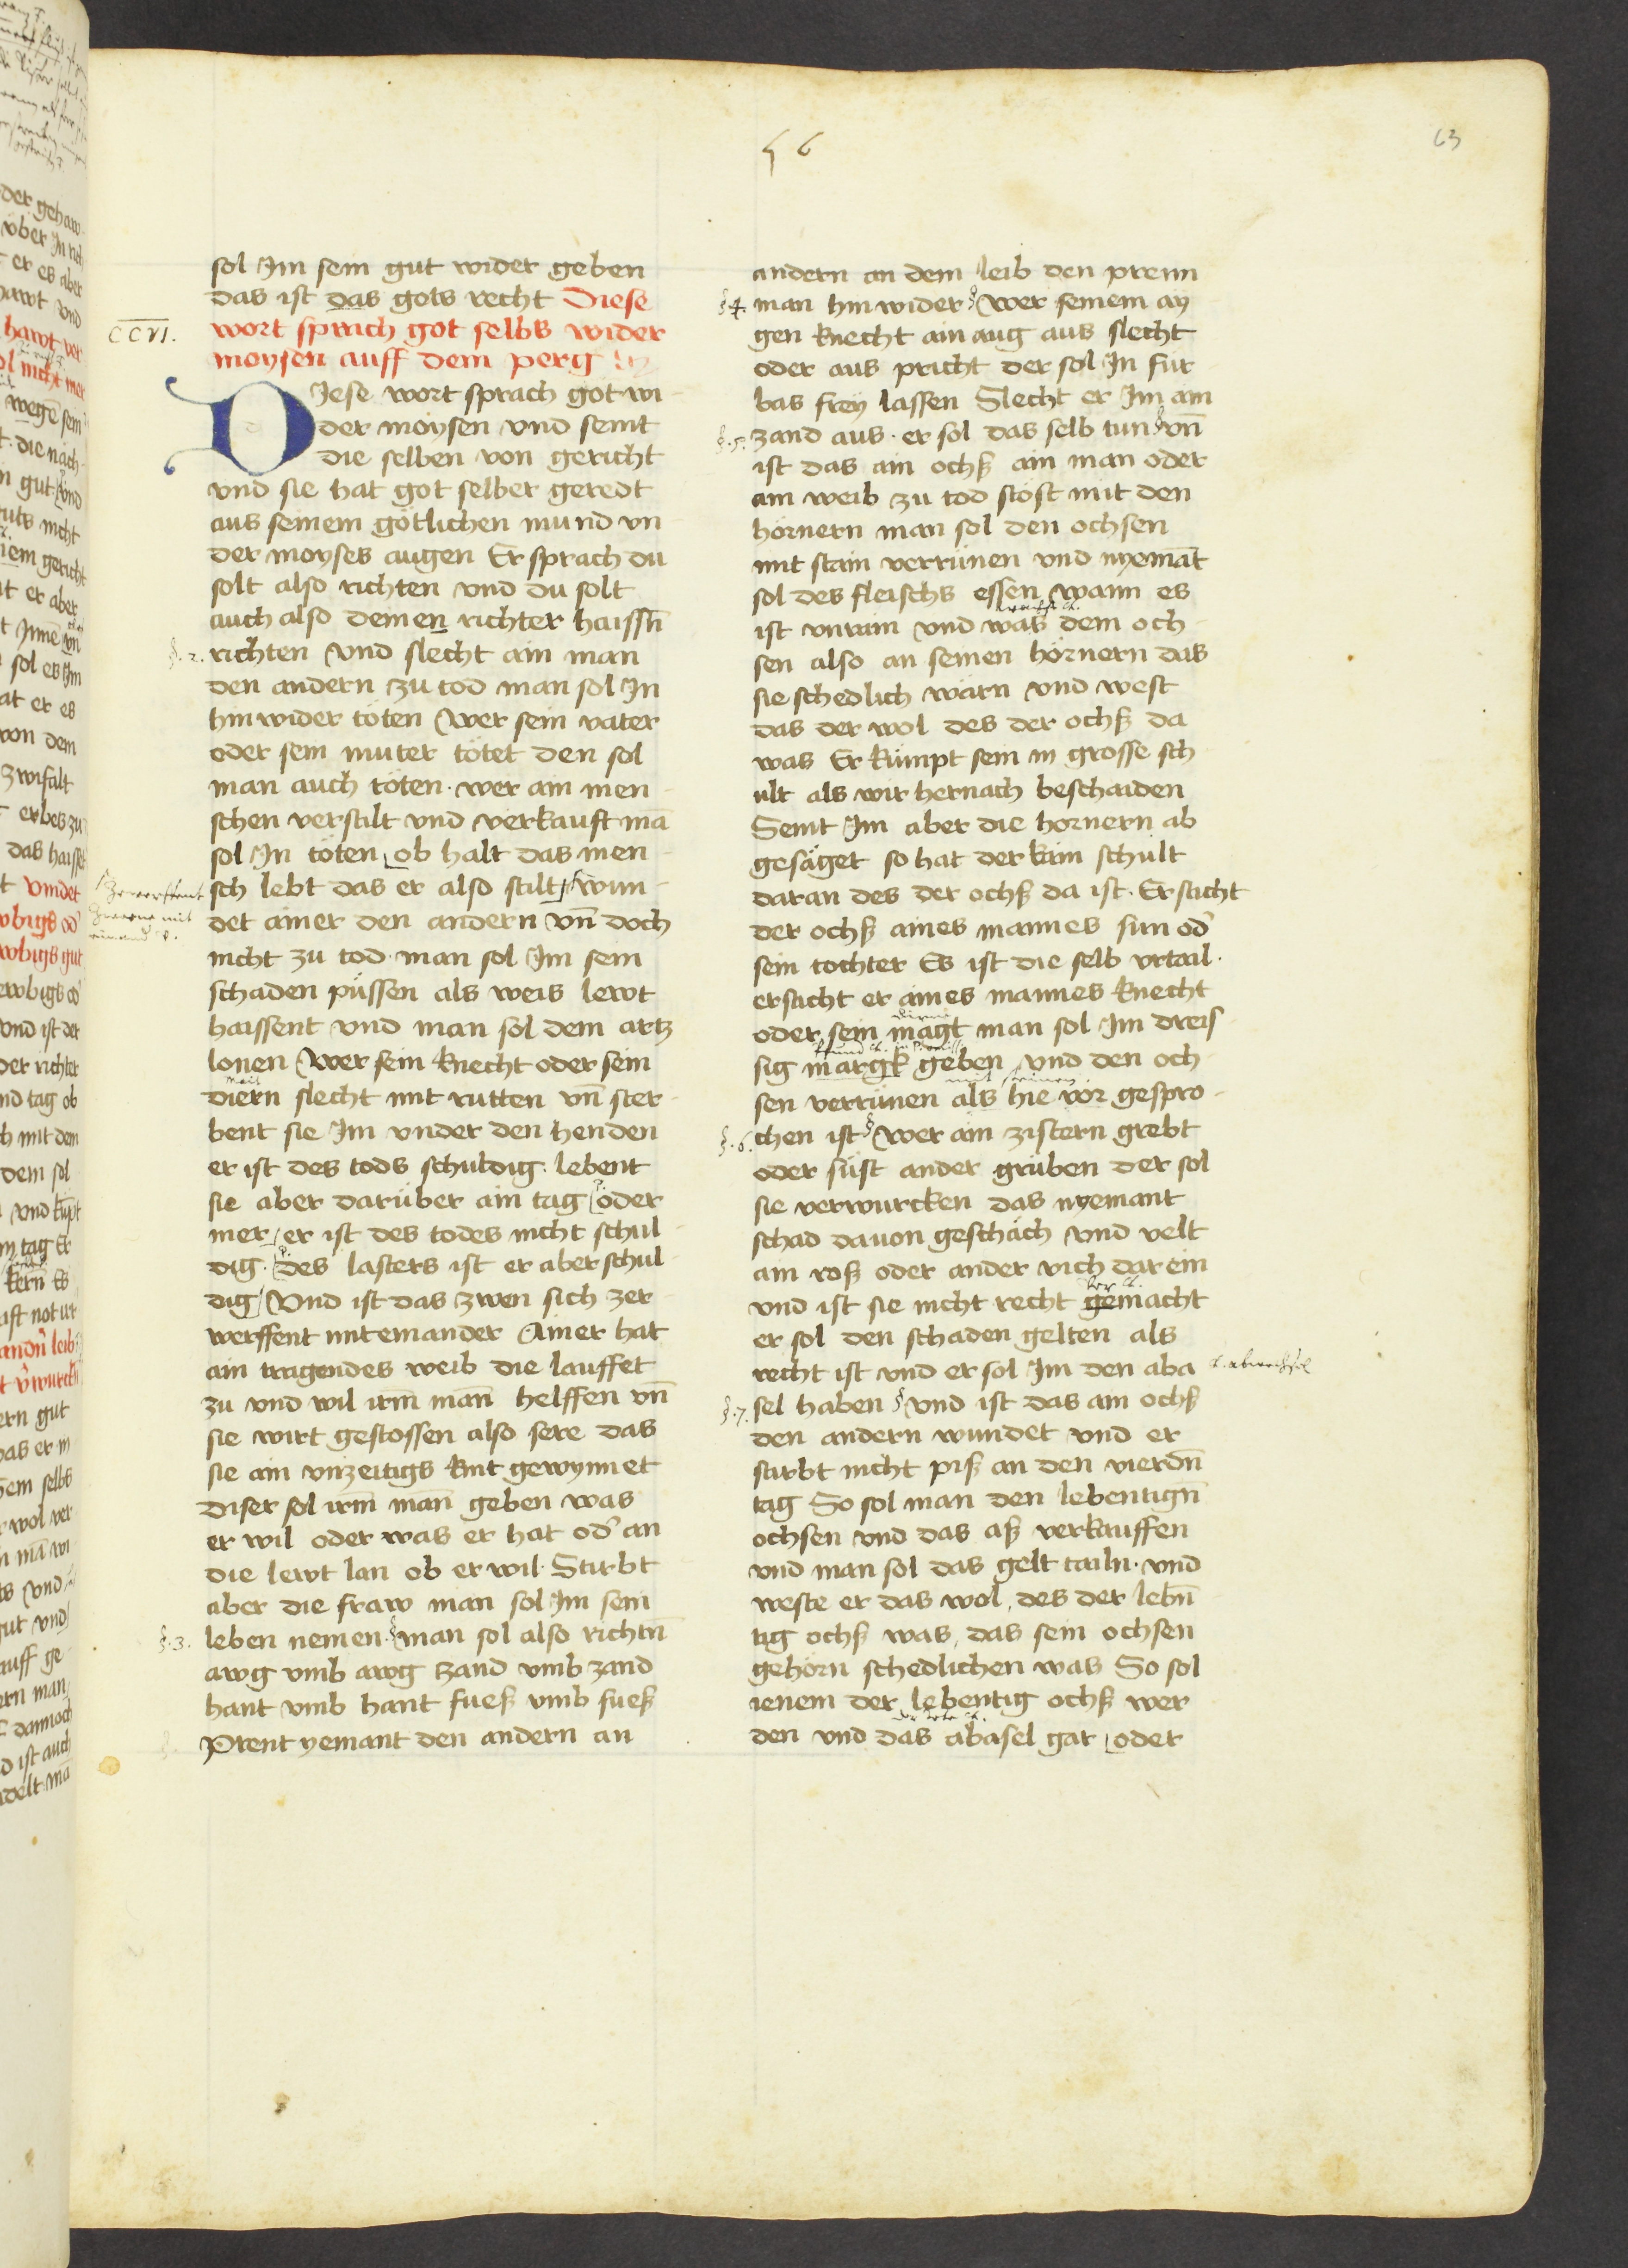 56
63
sol Im sein gut wider geben
das ist das gots recht Diese
CCVI.
wort sprich got selbs wider
moysen auff dem perg
DIese wort sprach got wi
der moysen vnd seint
die selben von gericht
vnd sie hat got selber geredt
aus seinem götlichen mund vn
der moyses augen Er sprach du
solt also richten vnd du solt
auch also deinen richter haissn̄
§. 2. richten Vnd slecht ain man
den andern zu tod man sol In
hin wider töten Wer sein vater
oder sein muter tötet den sol
man auch töten. wer ain men
schen verstilt vnd verkauft mā
sol In töten ob halt das men
sch lebt das er also stilt wun
det ainer den andern vn̄ doch
nicht zu tod. man sol Im sein
schaden püssen als weis lewt
haissent vnd man sol dem artz
lonen Wer sein knecht oder sein
diern slecht mit rutten vn̄ ster
bent sie Im vnder den henden
er ist des tods schuldig. lebent
sie aber darüber ain tag oder
mer er ist des todes nicht schul
dig. des lasters ist er aber schul
dig Vnd ist das zwen sich zer
werffent mit einander Ainer hat
ain tragendes weib die lauffet
zu vnd wil irm̄ man̄ helffen vn̄
sie wirt gestossen also sere das
sie ain vnzeitigs kint gewynnet
Diser sol irm̄ man̄ geben was
er wil oder was er hat od' an
die lewt lan ob er wil. Stirbt
aber die fraw man sol Im sein
§. 3. leben nemen. § man sol also richtn̄
awg vmb awg zand vmb zand
hant vmb hant fueß vmb fueß
Prent yemant den andern an
andern an dem leib den prenn
§ 4. man hin wider § Wer seinem ay
gen knecht ain aug aus slecht
oder aus pricht der sol In für
bas frey lassen Slecht er Im ain
§. 5. zand aus. er sol das selb tun § vn̄
ist das ain ochß ain man oder
ain weib zu tod stöst mit den
hörnern man sol den ochsen
mit stain verrünen vnd nyemāt
sol des fleischs essen wann es
ist vnrain vnd was dem och
sen also an seinen hörnern das
sie schedlich wärn vnd west
das der wol des der ochß da
was Er kümpt sein in grosse sch
ult als wir hernach beschaiden
Seint Im aber die hornern ab
gesäget so hat der kain schult
daran des der ochß da ist. Ersticht
der ochß aines mannes sun od'
sein tochter Es ist die selb vrtail.
ersticht er aines mannes knecht
dirne
oder sein magt man sol Im dreis
sig margk geben vnd den och
mit steinen
sen verrünen als hie vor gespro
§. 6. chen ist § Wer ain zistern grebt
oder süst ander grüben der sol
sie verwurcken das nyemant
schad dauon geschäch Vnd velt
ain roß oder ander vich dar ein
ver
vnd ist sie nicht recht gemacht
er sol den schaden gelten als
recht ist vnd er sol Im den aba
§. 7. sel haben § Vnd ist das ain ochß
den andern wundet vnd er
stirbt nicht piß an den vierdn̄
tag So sol man den lebentign̄
ochsen vnd das aß verkauffen
vnd man sol das gelt tailn. vnd
weste er das wol, des der lebn̄
tig ochß was, das sein ochsen
gehörn schedlichen was So sol
ienem der lebentig ochß wer
den vnd das abasel gar oder